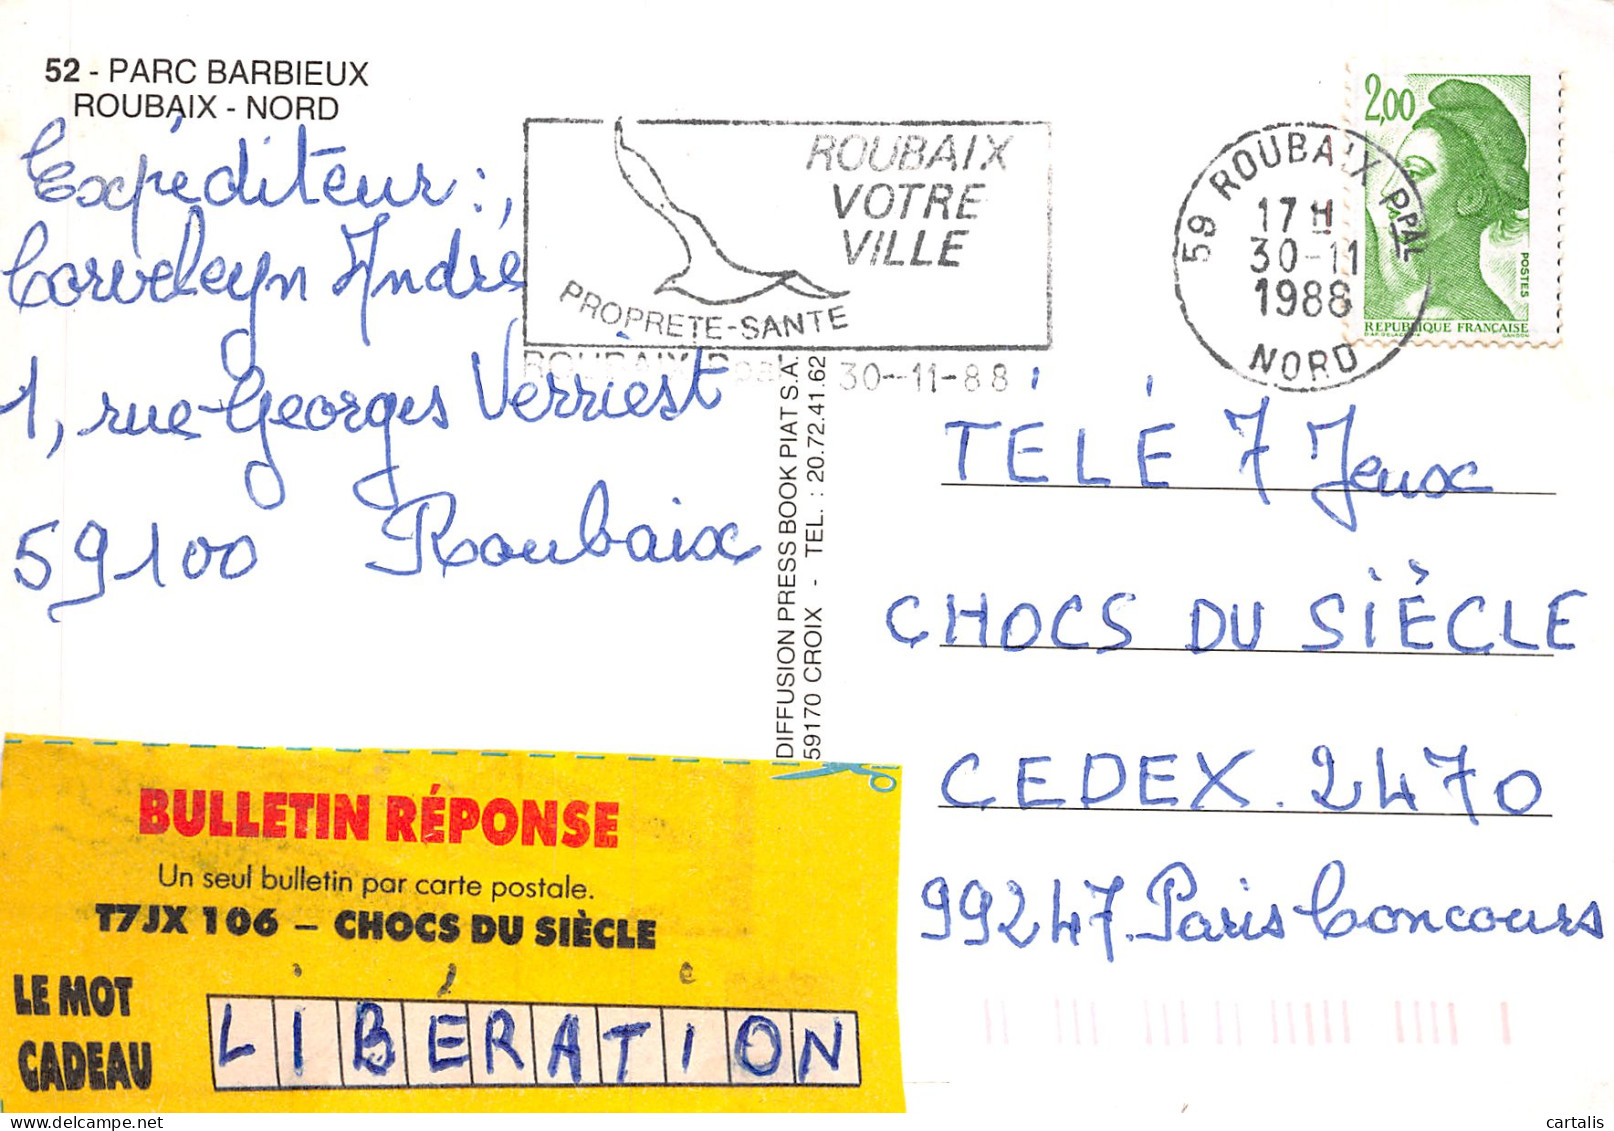 52 - PARC BARBIEUX
ROUBAIX - NORD
Expéditeur :
Corveleyn André
1, rue Georges Verriest
59100 Roubaix
ROUBAIX
VOTRE
VILLE
PROPRETE-SANTE
ROUBAIX Ppal 30-11-88
59 ROUBAIX PPAL
17 H
30-11
1988
NORD
2,00
POSTES
REPUBLIQUE FRANÇAISE
DIFFUSION PRESS BOOK PIAT S.A.
59170 CROIX - TEL. : 20.72.41.62
TÉLÉ 7 Jeux
CHOCS DU SIÈCLE
CEDEX. 2470
99247. Paris Concours
BULLETIN RÉPONSE
Un seul bulletin par carte postale.
T7JX 106 – CHOCS DU SIÈCLE
LE MOT
CADEAU
LIBÉRATION
cartalis